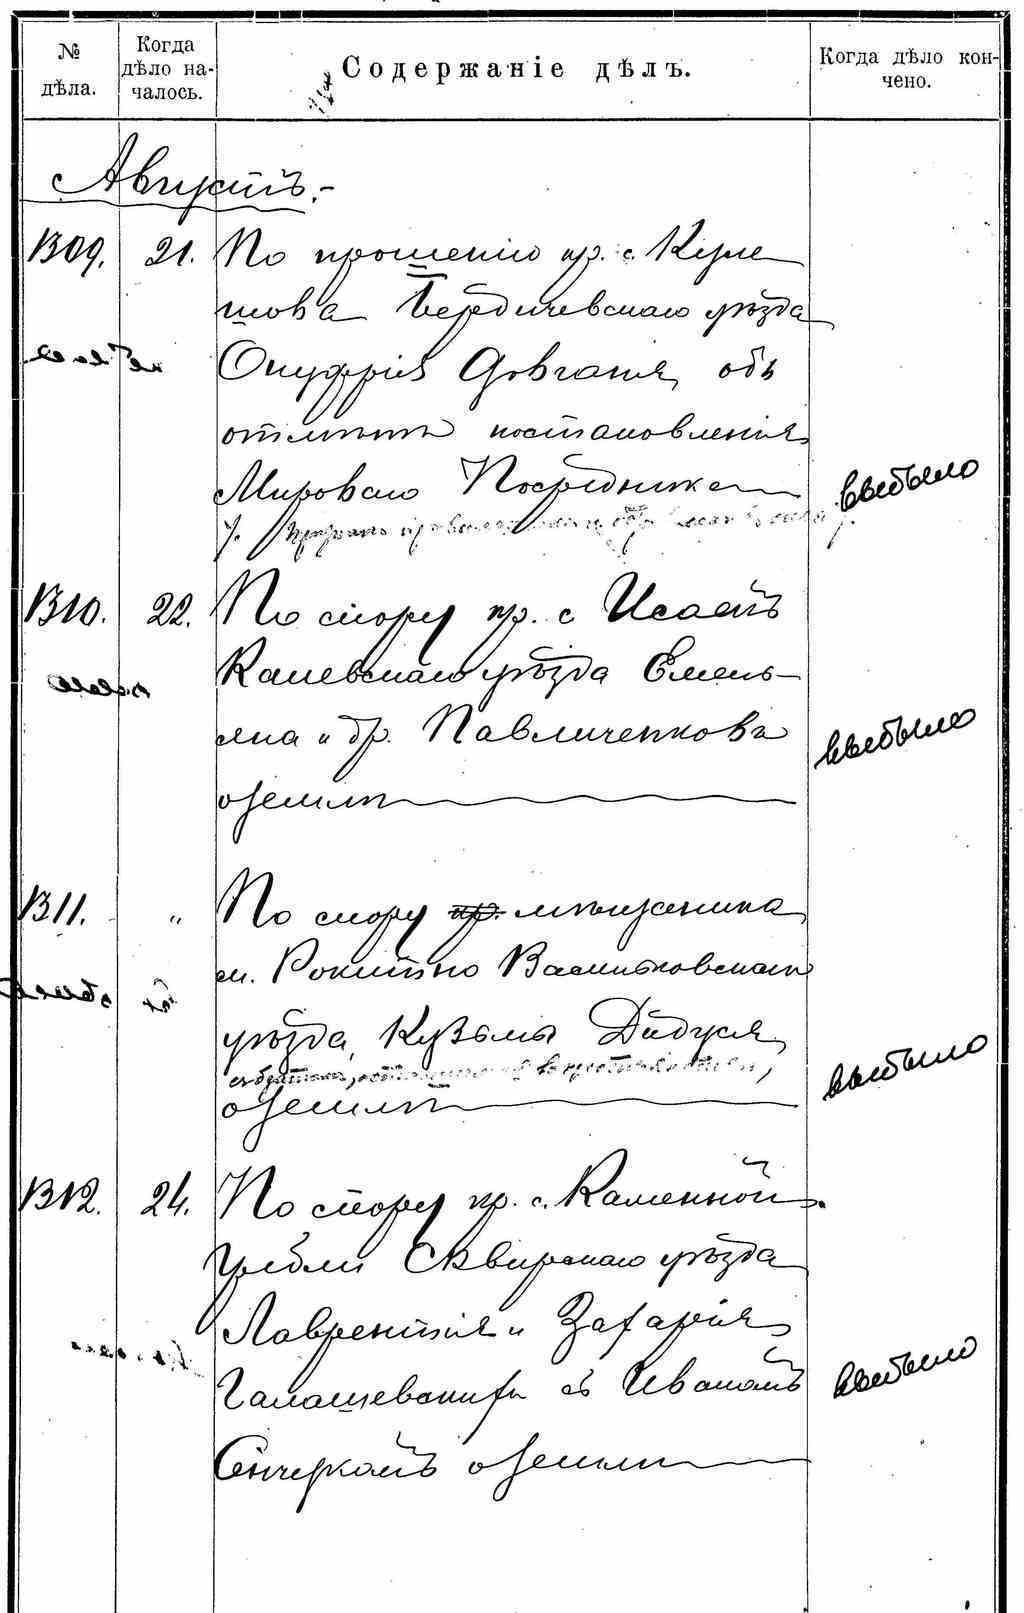 № дѣла.
Когда дѣло началось.
Содержаніе дѣлъ.
Когда дѣло кончено.
Августъ.
1309. 21. По прошенію кр. с. Куле
шова Бердичевскаго уѣзда
Онуфрія Довганя, объ
отмѣнѣ постановленія
Мироваго Посредника
выбыло
1310. 22. По спору кр. с. Исаекъ
Каневскаго уѣзда Емель-
яна и др. Павличенковъ
о землѣ
выбыло
1311. " По спору кр. мѣщанина
м. Рокитно Васильковскаго
уѣзда, Кузьмы Дидуся,
съ братомъ,
о землѣ
выбыло
1312. 24. По спору кр. с. Каменной
Гребли Сквирскаго уѣзда
Лаврентія и Захарія
Галашевскихъ съ Иваномъ
Сенчукомъ о землѣ
выбыло